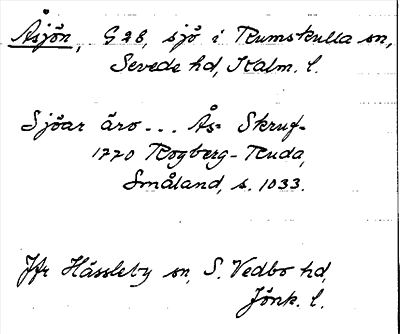 Åsjön, G 2 B, sjö i Rumskulla sn,
Sevede hd, Kalm. l.
Sjöar äro - - . Ås= Skruf-
1770 Rogberg-Ruda,
Småland, s. 1033.
Jfr Hässleby sn, S. Vedbo hd,
Jönk. l.